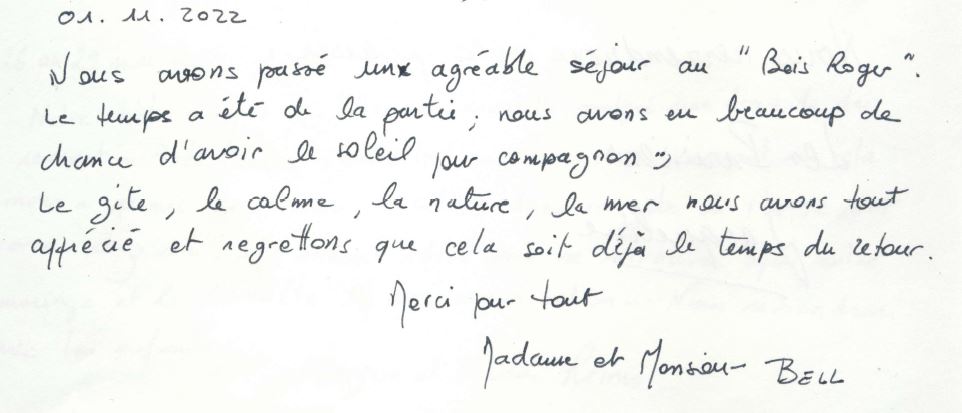 01. 11. 2022
Nous avons passé un agréable séjour au "Bois Roger".
Le temps a été de la partie, nous avons eu beaucoup de
chance d'avoir le soleil pour compagnon
Le gîte, le calme, la nature, la mer nous avons tout
apprécié et regrettons que cela soit déjà le temps du retour.
Merci pour tout
Madame et Monsieur BELL